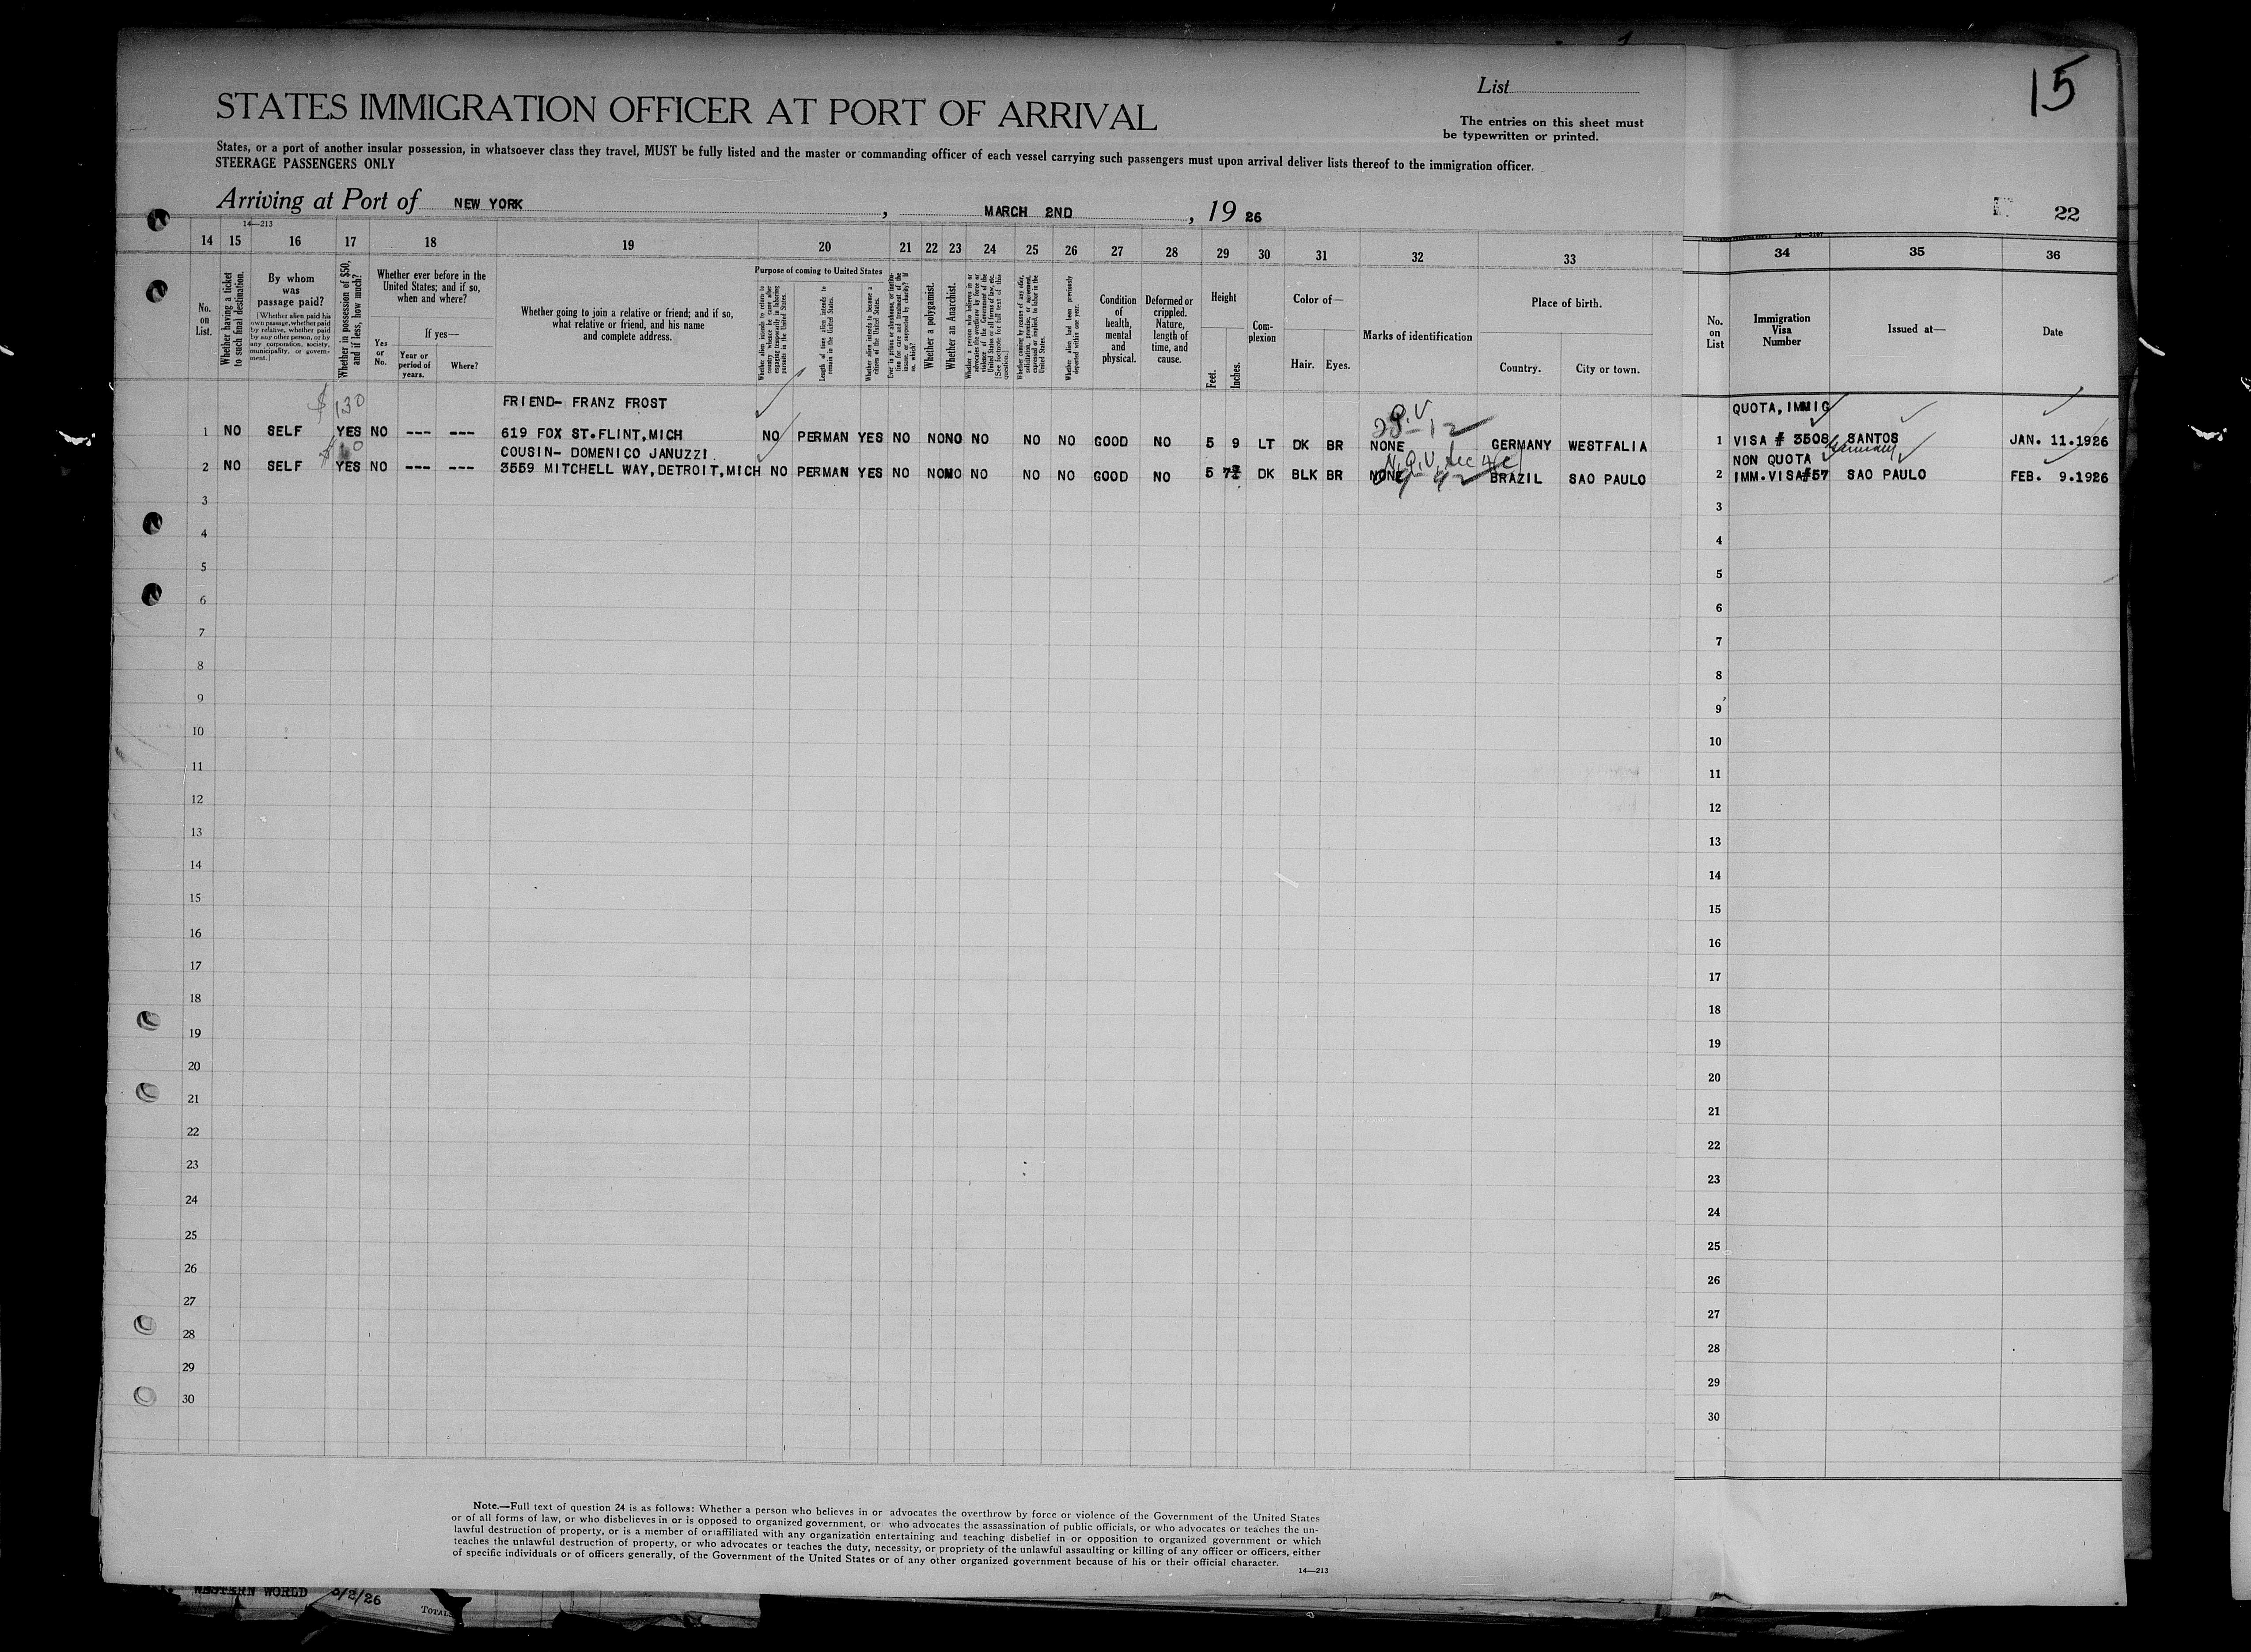 15
List
STATES IMMIGRATION OFFICER AT PORT OF ARRIVAL
The entries on this sheet must
be typewritten or printed.
States, or a port of another insular possession, in whatsoever class they travel, MUST be fully listed and the master or commanding officer of each vessel carrying such passengers must upon arrival deliver lists thereof to the immigration officer.
STEERAGE PASSENGERS ONLY
Arriving at Port of NEW YORK, MARCH 2ND, 1926
22
14—213
14 15 16 17 18 19 20 21 22 23 24 25 26 27 28 29 30 31 32 33 34 35 36
No. on List.
Whether having a ticket to such final destination.
By whom was passage paid?
[Whether alien paid his own passage, whether paid by relative, whether paid by any other person, or by any corporation, society, municipality, or government.]
Whether in possession of $50, and if less, how much?
Whether ever before in the United States; and if so, when and where?
Yes or No.
If yes—
Year or period of years.
Where?
Whether going to join a relative or friend; and if so, what relative or friend, and his name and complete address.
Purpose of coming to United States
Whether alien intends to return to country whence he came after engaging temporarily in laboring pursuits in the United States.
Length of time alien intends to remain in the United States.
Whether alien intends to become a citizen of the United States.
Ever in prison or almshouse, or institution for care and treatment of the insane, or supported by charity? If so, which?
Whether a polygamist.
Whether an Anarchist.
Whether a person who believes in or advocates the overthrow by force or violence of the Government of the United States or all forms of law, etc. [See footnote for full text of this question.]
Whether coming by reason of any offer, solicitation, promise, or agreement, expressed or implied, to labor in the United States.
Whether alien had been previously deported within one year.
Condition of health, mental and physical.
Deformed or crippled. Nature, length of time, and cause.
Height
Feet. Inches.
Complexion
Color of—
Hair. Eyes.
Marks of identification
Place of birth.
Country. City or town.
No. on List
Immigration Visa Number
Issued at—
Date
$130
FRIEND- FRANZ FROST
QUOTA, IMMIG
1 NO SELF YES NO --- --- 619 FOX ST.FLINT,MICH NO PERMAN YES NO NO NO NO NO NO GOOD NO 5 9 LT DK BR NONE GERMANY WESTFALIA 1 VISA # 3508 SANTOS JAN. 11.1926
COUSIN- DOMENICO JANUZZI
NON QUOTA
2 NO SELF YES NO --- --- 3559 MITCHELL WAY,DETROIT,MICH NO PERMAN YES NO NO NO NO NO NO GOOD NO 5 7 DK BLK BR NONE BRAZIL SAO PAULO 2 IMM.VISA#57 SAO PAULO FEB. 9.1926
3 3
4 4
5 5
6 6
7 7
8 8
9 9
10 10
11 11
12 12
13 13
14 14
15 15
16 16
17 17
18 18
19 19
20 20
21 21
22 22
23 23
24 24
25 25
26 26
27 27
28 28
29 29
30 30
Note.—Full text of question 24 is as follows: Whether a person who believes in or advocates the overthrow by force or violence of the Government of the United States
or of all forms of law, or who disbelieves in or is opposed to organized government, or who advocates the assassination of public officials, or who advocates or teaches the un-
lawful destruction of property, or is a member of or affiliated with any organization entertaining and teaching disbelief in or opposition to organized government or which
teaches the unlawful destruction of property, or who advocates or teaches the duty, necessity, or propriety of the unlawful assaulting or killing of any officer or officers, either
of specific individuals or of officers generally, of the Government of the United States or of any other organized government because of his or their official character.
14—213
WESTERN WORLD 3/2/26
TOTAL